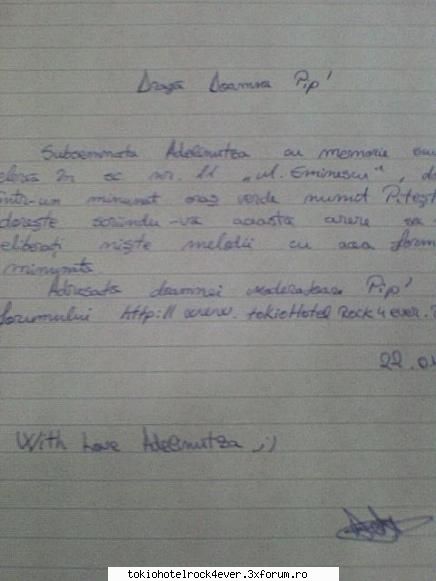 Dragă Doamna Pip'
Subsemnata Adelinutza cu memorie
elevă în sc nr. 11 „ M. Eminescu" , d
într-un minunat oraș verde numit Pitești
dorește scriindu-vă această cerere să
eliberați niște melodii cu acea form
minunată
Adresată doamnei moderatoare Pip'
forumului http://www.tokioHotelRock4ever.3
22.0
With Love Adelinutza ;)
tokiohotelrock4ever.3xforum.ro